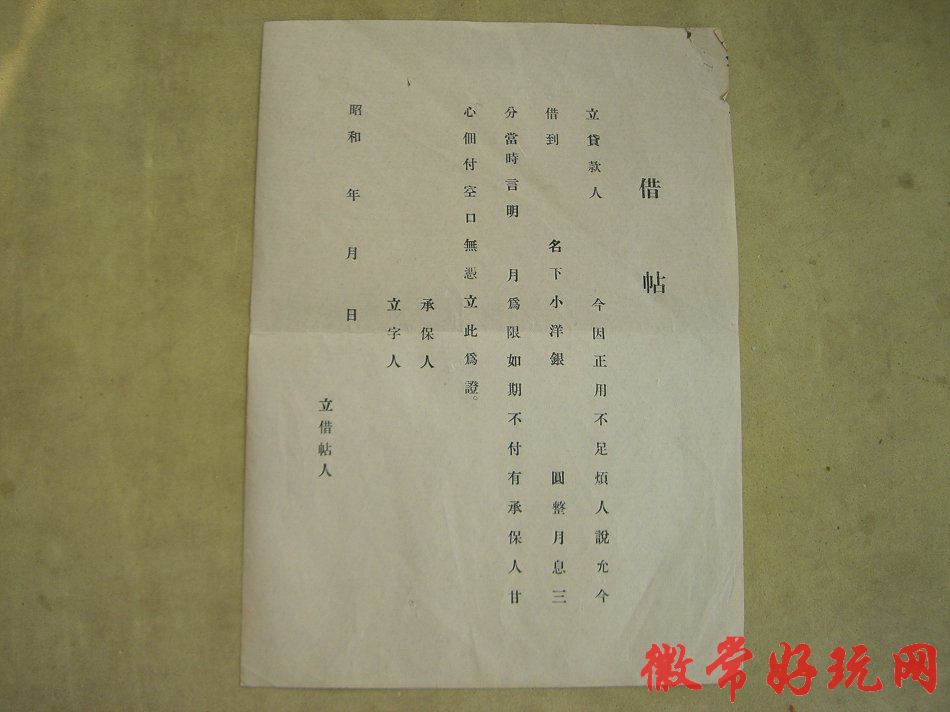 借帖
立貸款人 今因正用不足煩人說允今
借到 名下小洋銀 圓整月息三
分當時言明 月爲限如期不付有承保人甘
心佃付空口無憑立此爲證。
承保人
立字人
昭和 年 月 日
立借帖人
徽常好玩网